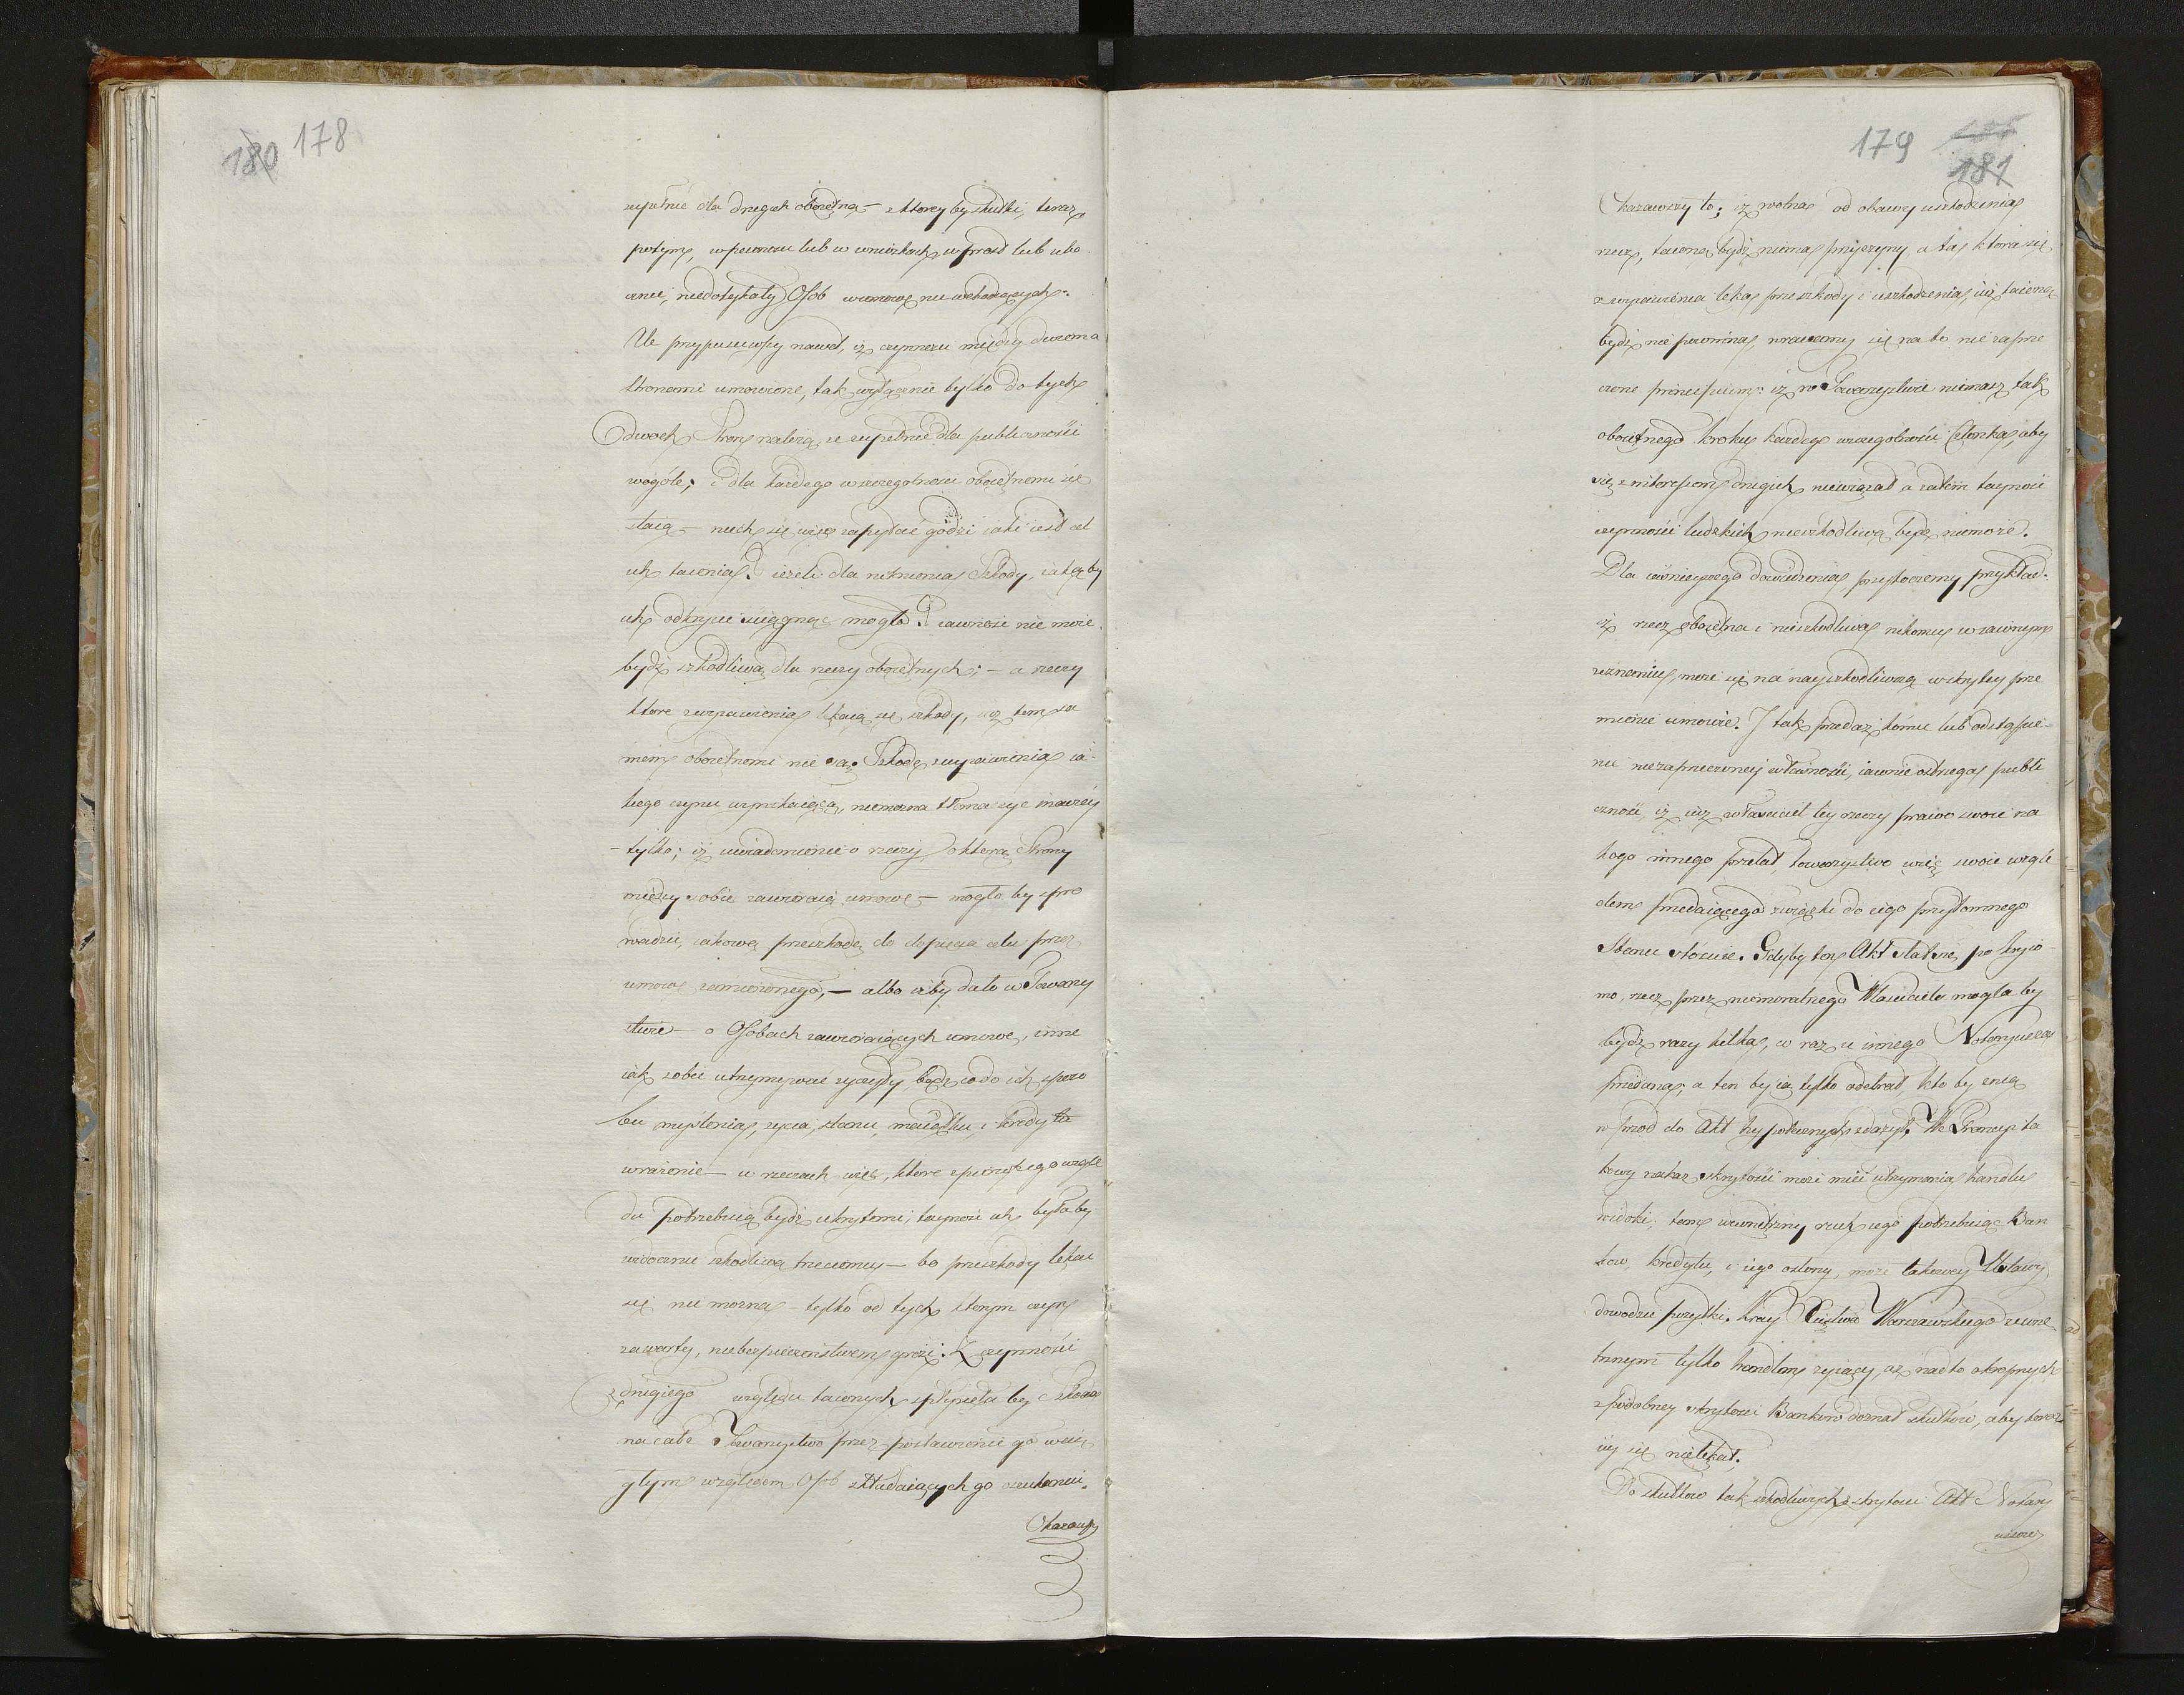 180 178
zupełnie dla drugich oboiętną — z ktorey by skutki, teraz
potym, w pewnem lub w wnioskach, wprost lub ubo
cznie, niedotykały Osob w umowę nie wchodzących.
Ale przypuściwszy nawet, iż czynności między dwiema
stronami umowione, tak wyłącznie tylko do tych
dwoch Stron należą, że zupełnie dla publiczności
wogóle; i dla każdego w szczegolnosci oboiętnemi się
staią — niech się więc zapytać godzi iaki iest cel
ich taienia? ieżeli dla uniknienia Szkody, iaką by
ich odkrycie sciągnąć mogło? iawność nie może
bydź szkodliwą dla rzeczy oboiętnych; — a rzeczy
ktore z wyiawienia lękaią się szkody, iuż tem sa
mem oboiętnemi nie są. Szkodę z wyiawienia ia-
kiego czynu wynikaiącą, niemożna tłomaczyć inaczéy
- tylko; iż uwiadomienie o rzeczy o ktorą Strony
między sobie zawieraią umowę — mogło by spro
wadzić, iakową przeszkodę do dopięcia celu przez
umowę zamierzonego, — albo iżby dało w Towarzy
stwie — o Osobach zawieraiących umowę, inne
iak sobie utrzymywać życzyły, bądź co do ich sposo
bu myślenia, życia, stanu, maiątku, i kredytu
wrażenie — w rzeczach więc, ktore z pierwszego wzglę
du potrzebuią bydź ukrytemi; tayność ich byłaby
widocznie szkodliwą trzeciemu — bo przeszkody lękać
się nie można — tylko od tych ktorym czyn
zawarty, niebezpieczenstwem grozi. Z czynności
z drugiego względu taionych spłynęła by szkoda
na całe Towarzystwo przez postawienie go w cią
głym względem Osob składaiących go oszukaniu.
Okazawszy
179 181
Okazawszy to; iż wolna od obawy uszkodzenia
rzecz, taioną bydź niema przyczyny, a ta ktora się
z wyiawienia lęka przeszkody i uszkodzenia, iuż taioną
bydź nie powinna, wracamy się na to nie zaprze
czone principium: iż w Towarzystwie niemasz tak
oboiętnego kroku każdego w szczególności Członka, aby
się z interessem drugich niewiązał a zatém tayność
czynności ludzkich nieszkodliwą bydź niemoże.
Dla iaśnieyszego dowiedzenia przytoczemy przykład:
iż rzecz oboiętna i nieszkodliwa nikomu w iawnym
zeznaniu, może się na nayszkodliwszą w skrytey prze
mienić umowie. I tak przedaż komu lub odstąpie-
nie niezaprzeczoney własności, iawnie ostrzega publi
czność, iż iuż właściciel tey rzeczy prawo swoie na
kogo innego przelał, towarzystwo więc swoie wzglę
dem przedaiącego związki do iego przytomnego
Stanu stósuie. Gdyby ten Akt stał się po kryio
mo, rzecz przez niemoralnego Właściciela mogła by
bydź razy kilka, co raz u innego Notaryusza
przedana, a ten by ią tylko odebrał, kto by onę
wprzod do Akt hypotecznych zdążył. We Francyi ta
kowy nakaz skrytości może mieć utrzymania handlu
widoki; tam wewnętrzny ruch iego potrzebuiąc Ban
kow, kredytu, i iego osłony, może takowey Ustawy
dowodzić pożytki. Kray Xięstwa Warszawskiego zewnę
trznym tylko handlem żyiący, aż nadto okropnych
z podobney skrytosci Bankow doznał skutków, aby teraz
iey się nielękał.
Do skutków tak szkodliwych z skrytosci Akt Notary
uszow